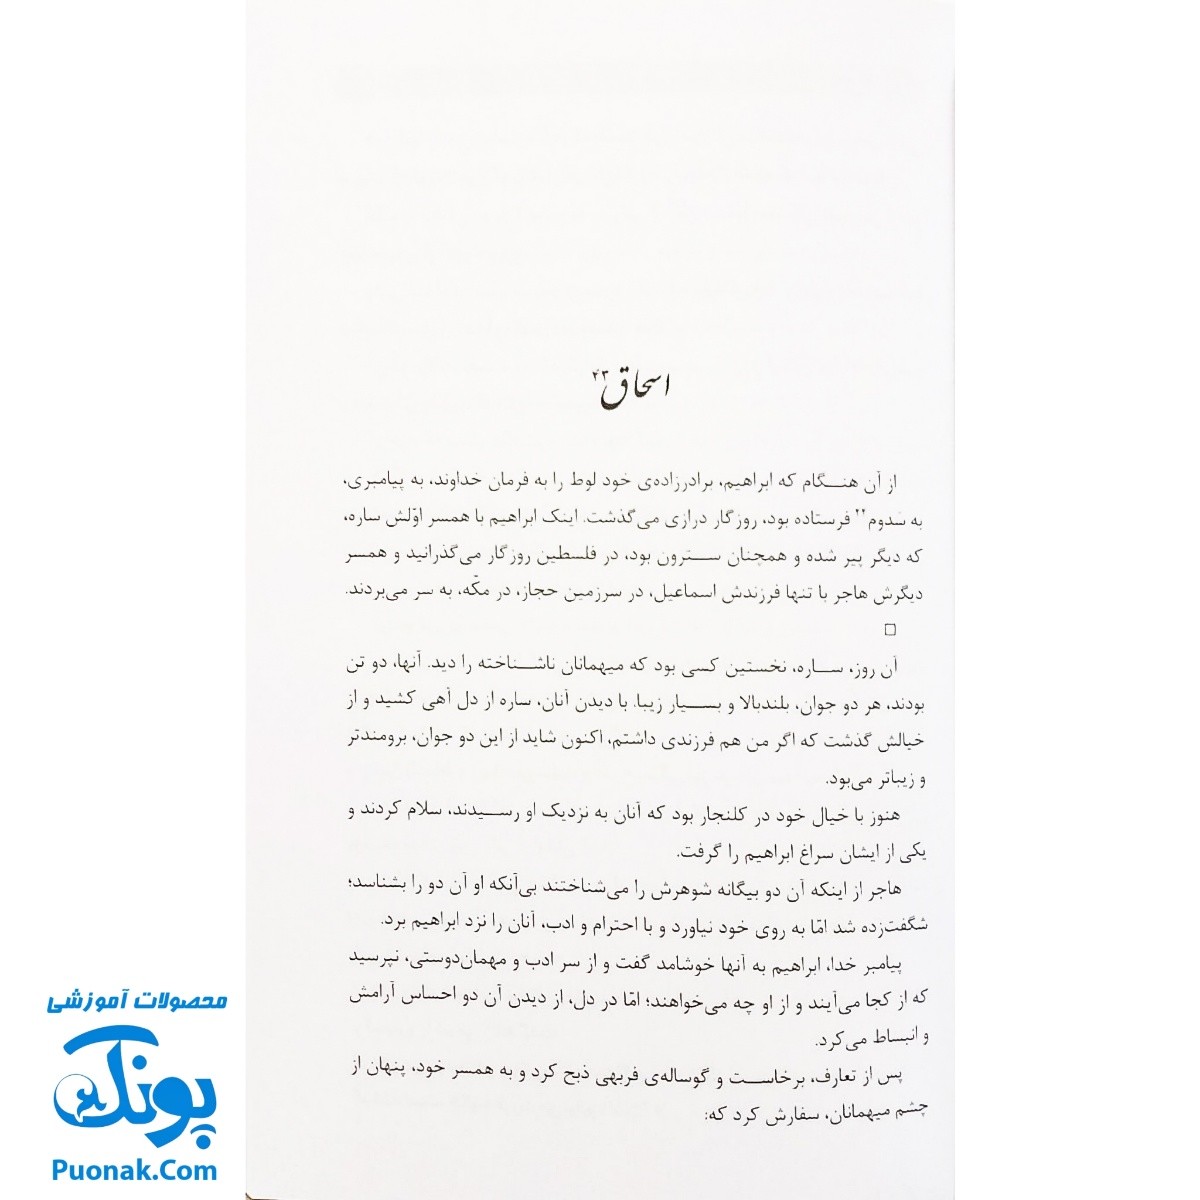 اسحاق۴۳
از آن هنگام که ابراهیم، برادرزاده‌ی خود لوط را به فرمان خداوند، به پیامبری،
به سَدوم۲۲ فرستاده بود، روزگار درازی می‌گذشت. اینک ابراهیم با همسر اوّلش ساره،
که دیگر پیر شده و همچنان سترون بود، در فلسطین روزگار می‌گذرانید و همسر
دیگرش هاجر با تنها فرزندش اسماعیل، در سرزمین حجاز، در مکّه، به سر می‌بردند.
□
آن روز، ساره، نخستین کسی بود که میهمانان ناشناخته را دید. آنها، دو تن
بودند، هر دو جوان، بلندبالا و بسیار زیبا. با دیدن آنان، ساره از دل آهی کشید و از
خیالش گذشت که اگر من هم فرزندی داشتم، اکنون شاید از این دو جوان، برومندتر
و زیباتر می‌بود.
هنوز با خیال خود در کلنجار بود که آنان به نزدیک او رسیدند، سلام کردند و
یکی از ایشان سراغ ابراهیم را گرفت.
هاجر از اینکه آن دو بیگانه شوهرش را می‌شناختند بی‌آنکه او آن دو را بشناسد؛
شگفت‌زده شد امّا به روی خود نیاورد و با احترام و ادب، آنان را نزد ابراهیم برد.
پیامبر خدا، ابراهیم به آنها خوشامد گفت و از سر ادب و مهمان‌دوستی، نپرسید
که از کجا می‌آیند و از او چه می‌خواهند؛ امّا در دل، از دیدن آن دو احساس آرامش
و انبساط می‌کرد.
پس از تعارف، برخاست و گوساله‌ی فربهی ذبح کرد و به همسر خود، پنهان از
چشم میهمانان، سفارش کرد که:
محصولات آموزشی
پونک
Puonak.Com